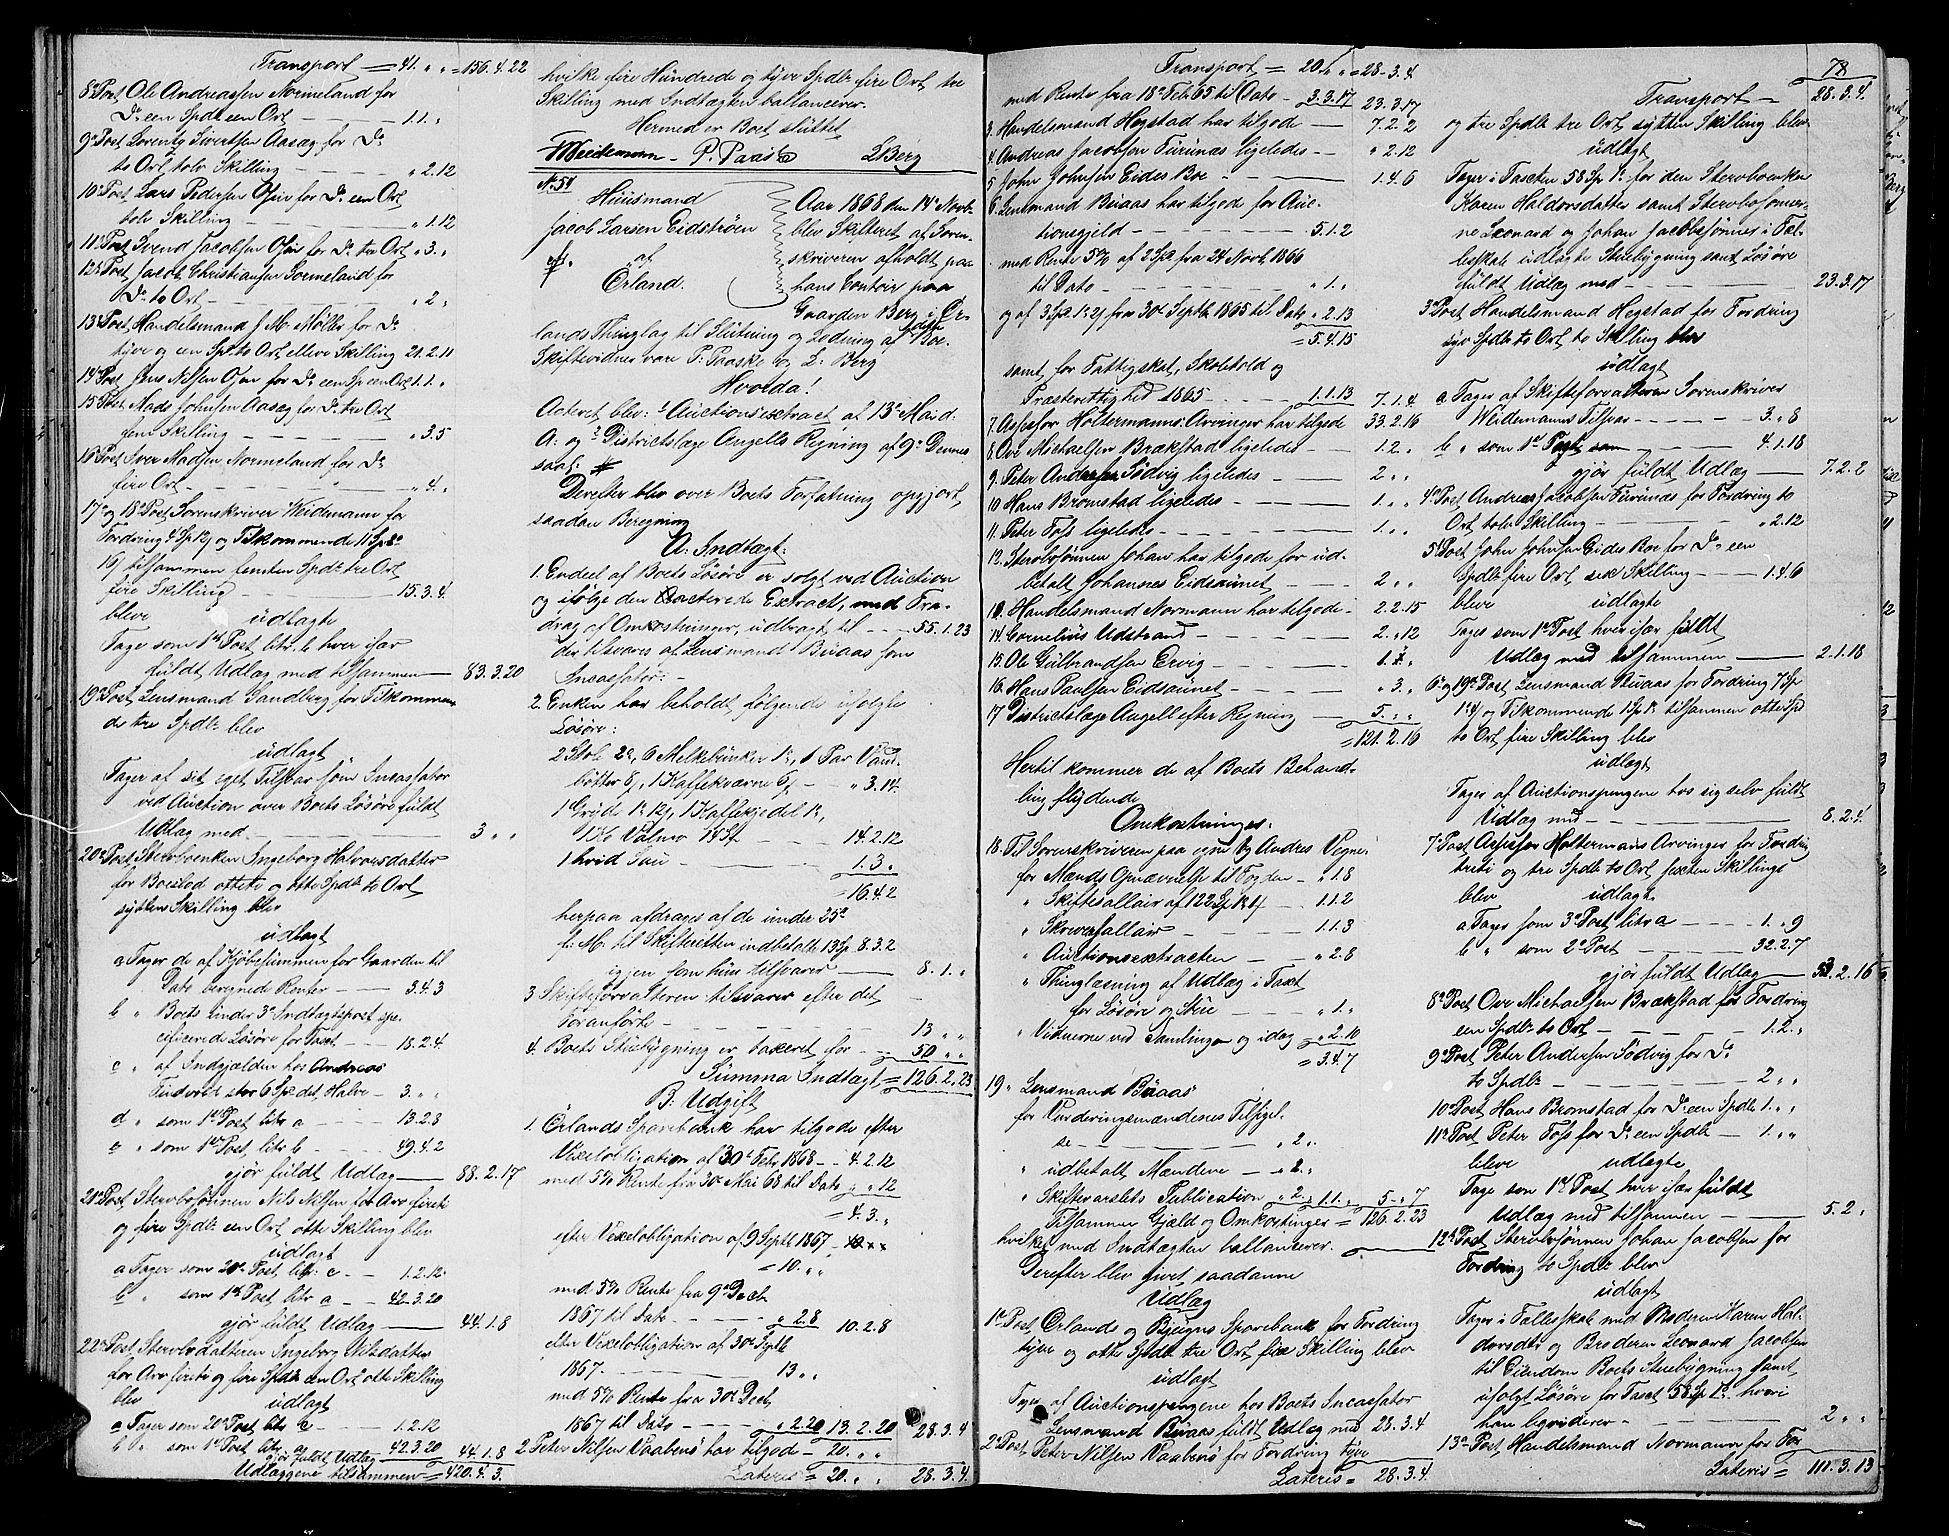 Transport = 41. " " = 156.4.22
8de Post Ole Andreassen Normeland for
Do een Spdlr een Ort - - - 1.1. "
9de Post Lorentz Sivertsen Aasæg for Do
to Ort tolv Skilling - - - " 2.12
10de Post Lars Pedersen Ofsin for Do een Ort
tolv Skilling - - - " 1.12
11te Post Svend Jacobsen Ofsin for Do tre Ort " 3. "
12te Post Jacob Christiansen Normeland for
Do to Ort - - - " 2 "
13de Post Handelsmand J. M. Møller for Do
tyve og een Sp. to Ort elleve Skilling 21.2.11
14de Post Jens Nilsen Ofsin for Do een Sp een Ort 1.1. "
15de Post Mads Johnsen Aasæg for Do tre Ort
fem Skilling - - - " 3.5
16de Post Iver Madsen Normeland for Do
fire Ort - - - " 4. "
17de og 18de Post Sorenskriver Weidemann for
Fordring 4 Sp 12 s og Tilkommende 11 Sp 3 o
16 s tilsammen femten Spdlr tre Ort
fire Skilling - - - 15.3.4.
bleve udlagte
Tage som 1ste Post litr. b hver især
fuldt Udlæg med tilsammen 83.3.20
19de Post Lensmand Sandberg for Tilkommen-
de tre Spdlr blev
udlagt
Tager af sit eget Tilsvar som Incassator
ved Auction over Boets Løsøre fuldt
Udlæg med - - - 3 " "
20de Post Stervboenken Ingeborg Halvorsdatter
for Boeslod otteti og otte Spdlr to Ort
sytten Skilling blev
udlagt
a Tager de af Kjøbesummen for Gaarden til
Dato beregnede Renter - - 3.4.3
b " Boets under 3de Indtægtspost spe-
cificerede Løsøre for Taxt - - 18.2.4.
c " af Indgjælden hos Andreas
stor 6 Sp det Halve - 3. " "
d " som 1ste Post litr a - - - 13.2.8
e " som 1ste Post, litr b - - - 49.4.2
gjør fuldt Udlæg 88.2.17
21de Post Stervbosønnen Nils Nilsen for Arv fireti
og fire Spdlr een Ort otte Skilling blev
udlagt
a Tager som 20de Post litr: c - - 1.2.12
b " som 1ste Post litr a - - 42.3.20
gjør fuldt Udlæg 44.1.8
22de Post Stervbodatteren Ingeborg Nilsdatter
for Arv fireti og fire Spdlr een Ort otte Skilling
blev udlagt
a Tager som 20de Post litr c - - 1.2.12
b " som 1ste Post litr a - - 42.3.20
gjør fuldt Udlæg 44.1.8
Udlæggene tilsammen = 420.4.3.
hvilke fire Hundrede og tyve Spdlr fire Ort tre
Skilling med Indtægten ballancerer.
Hermed er Boet sluttet
Weidemann - P. Paaske L Berg
No. 54
Huusmand
Jacob Larsen Eidstrøen
af
Ørland.
Aar 1868 den 14de Novbr
blev Skifteret af Soren-
skriveren afholdt paa
hans Contoir paa
Gaarden Berg i Ør-
lands Thinglag til Slutning og Lodning af dette Boe.
Skiftevidner vare P: Paaske og L: Berg
Hvorda!
Acteret blev: 1 Auctionsextract af 13de Mai d.
A: og 2 Districtslæge Angells Regning af 9de Dennes
saal:
Derefter blev over Boets Forfatning opgjort
saadan Beregning
A: Indtægt:
1. Endeel af Boets Løsøre er solgt ved Auction
og ifølge den acterede Extract, med Fra-
drag af Omkostninger, udbragt til - - - 55.1.23
der tilsvares af Lensmand Buaas som
Incassator: -
2. Enken har beholdt følgende ifolgte
Løsøre:
2 Stole 2 o, 6 Melkebunker 1 o, 1 Par Vand-
bøtter 8 s, 1 Kaffekværne 6 s - " 3.14.
1 Gryde 1 o 12 s, 1 Kaffekjedel 1 o,
14.2.12
1 hvid - - - 1.3. "
= 16.4.2
herpaa afdrages af de under 25de
f: M: til Skifteretten indbetalte 13 Sp. 8.3.2
igjen som hun tilsvarer 8.1. "
3 Skifteforvalteren tilsvarer efter det
Foranførte - - - 13 " "
4. Boets Stuebygning er taxeret for - 50 " "
Summa Indtægt = 126.2.23
B: Udgift
1. Ørlands Sparebank har tilgode efter
Vexelobligation af 30te Febr 1868 - - 4.2.12
med 5% Rente fra 30te Mai 68 til Dato " " 12
= 4.3. "
efter Vexelobligation af 9 Septb 1867
= 10. " "
med 5% Rente fra 9de Decb
1867 til Dato - - - " 2.8 10.2.8
efter Vexelobligation af 30te Septb
1867 - - - 13 " "
med 5% Rente fra 30te Decb
1867 til Dato - - - " 2.20 13.2.20 28.3.4
2. Peter Nilsen Vaabenø har tilgode - 20. " "
Lateris = 20. " " 28.3.4.
Transport = 20 " " = 28.3.4
med Rente fra 18de Feb 65 til Dato - 3.3.17 23.3.17
3. Handelsmand Hegstad har tilgode 7.2.2
4. Andreas Jacobsen Furunæs ligeledes - - " 2.12
5 John Johnsen Eides Boe - - - 1.4.6
6. Lensmand Buaas har tilgode for Auc-
tionsgjeld - - - 5.1.2
med Rente 5% af 2 Sp. fra 24 Novb 1866
til Dato - - - " 1. "
og af 3 Sp. 1 o 2 s fra 30te Septb 1865 til Dato " 2.13
= 5.4.15
samt for Fattigskat, Skolehold og
Præsterettighed 1865 - - - 1.1.13 7.1.4
7. Assessor Holtermanns Arvinger har tilgode 33.2.16
8. Ove Michaelsen Brækstad ligeledes - - 1.2. "
9. Peter Andersen Sødvig ligeledes - - 2 " "
10 Hans Bromstad ligeledes - - - 1. " "
11. Peter Foss ligeledes - - - 1. " "
12. Stervbosønnen Johan har tilgode for ud-
betalt Johannes Eidsaunet - - - 2 " "
13. Handelsmand Normann har tilgode - 2.2.15
14. Cornelius Udstrand - - - 2. " 12
15. Ole Gulbrandsen Ervig - - - 1. "
16. Hans Paulsen Eidsaunet - - - " 3. "
17 Districtslæge Angell efter Regning 5. " "
= 121.2.16
Hertil kommer de af Boets Behand-
ling flydende
Omkostninger:
18. Til Sorenskriveren paa egne og Andres Vegne:
for Mænds Opnævnelse til Fogden - " 1.8
" Skiftesallair af 122 Sp. - - 1.1.2
" Skriversallair - - - 1.1.3
" Auctionsextracten - - " 2.8
" Thinglæsning af Udlæg i Taxt
for Løsøre og Stue - - - " 1. "
" Vidnerne ved Samlinger og idag " 2.10
= 3.4.7
19 " Lensmand Buaas
for Vurderingsmændenes Tilsigel-
se - - - " 2. "
" udbetalt Mændene - - " 2. "
" Skiftevarslets Publication " 2. " 1.1. " 5. " 7
Tilsammen Gjæld og Omkostninger = 126.2.23
hvilket med Indtægten ballancerer.
Derefter blev givet saadanne
Udlæg
1ste Post, Ørlands og Bjugns Sparebank for Fordring
tyve og otte Spdlr tre Ort fire Skilling blev
udlagt
Tager af Auctionspengene hos Boets Incassator
Lensmand Buaas fuldt Udlæg med 28.3.4
2den Post, Peter Nilsen Vaabenø for Fordring tyve
Lateris = 28.3.4.
78
Transport - 28.3.4.
og tre Spdlr tre Ort sytten Skilling blev
udlagt
Tager i Taxten 58 Sp 1 o for den Stervboenken
Karen Haldorsdatter samt Stervbosønner-
ne Leonard og Johan Jacobssønner i Fæl-
lesskab udlagte Stuebygning samt Løsøre
fuldt Udlæg med - - - 23.3.17
3die Post Handelsmand Hegstad for Fordring
syv Spdlr to Ort to Skilling blev
udlagt
a Tager af Skifteforvalteren Sorenskriver
Weidemanns Tilsvar - - - 3. " 8
b " som 1ste Post - - - 4.1.18
gjør fuldt Udlæg 7.2.2
4de Post, Andreas Jacobsen Furunæs for Fordring to
Ort tolv Skilling - - - " 2.12
5te Post John Johnsen Eides Boe for Do een
Spdlr fire Ort sex Skilling - - 1.4.6
bleve udlagte
Tages som 1ste Post hver især fuldt
Udlæg med tilsammen 2.1.18
6te og 19de Post, Lensmand Buaas for Fordring 7 Sp
1 o 4 s og Tilkommende 1 Sp 1 o tilsammen otte Spd
to Ort fire Skilling blev
udlagt
Tager af Auctionspengene hos sig selv fuldt
Udlæg med - - - 8.2.4.
7de Post Assessor Holtermanns Arvinger for Fordring
treti og tre Spdlr to Ort sexten Skilling
blev udlagt
a Tager som 3die Post litr a - - - 1. " 9
b " som 2den Post - - - 32.2.7
gjør fuldt Udlæg 33.2.16
8de Post Ove Michaelsen Brækstad for Fordring
een Spdlr to Ort - - - 1.2. "
9de Post Peter Andersen Sødvig for Do
to Spdlr - - - 2 " "
10de Post Hans Bromstad for Do een Spdlr 1. " "
11te Post Peter Foss for Do een Spdlr - 1. " "
bleve udlagte
Tage som 1ste Post hver især fuldt
Udlæg med tilsammen 5.2. "
12te Post Stervbosønnen Johan Jacobsen for
Fordring to Spdlr blev
udlagt
Tager i Fællesskab med Moderen Karen Hal-
dorsdtr og Broderen Leonard Jacobsen
til Eiendom Boets Stuebygning samt
ifolgt Løsøre for Taxt 58 Sp 1 o hvori
han liqviderer - - - 2 " "
13de Post, Handelsmand Normann for For-
Lateris = 111.3.13